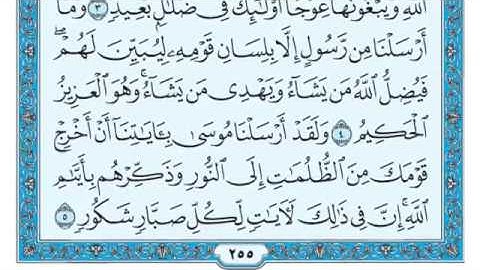 ٱللَّهِ وَيَبْغُونَهَا عِوَجًا أُو۟لَٰٓئِكَ فِى ضَلَٰلٍۭ بَعِيدٍ ٣ وَمَآ
أَرْسَلْنَا مِن رَّسُولٍ إِلَّا بِلِسَانِ قَوْمِهِۦ لِيُبَيِّنَ لَهُمْ ۖ
فَيُضِلُّ ٱللَّهُ مَن يَشَآءُ وَيَهْدِى مَن يَشَآءُ ۚ وَهُوَ ٱلْعَزِيزُ
ٱلْحَكِيمُ ٤ وَلَقَدْ أَرْسَلْنَا مُوسَىٰ بِـَٔايَٰتِنَآ أَنْ أَخْرِجْ
قَوْمَكَ مِنَ ٱلظُّلُمَٰتِ إِلَى ٱلنُّورِ وَذَكِّرْهُم بِأَيَّىٰمِ
ٱللَّهِ ۚ إِنَّ فِى ذَٰلِكَ لَءَايَٰتٍ لِّكُلِّ صَبَّارٍ شَكُورٍ ٥
٢٥٥